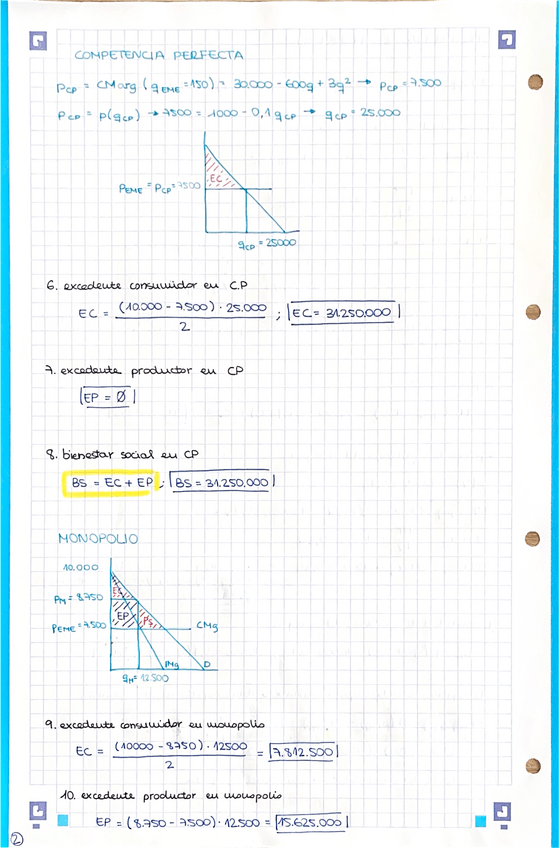 COMPETENCIA PERFECTA
PCP = CMarg (qEME = 150) = 30.000 - 600q + 3q² → PCP = 7.500
PCP = p(qCP) → 7500 = 1000 - 0,1 qCP → qCP = 25.000
EC
PEME = PCP = 7500
qCP = 25000
6. excedente consumidor en C.P
EC = (10.000 - 7.500) · 25.000 / 2 ; EC = 31.250.000
7. excedente productor en CP
EP = Ø
8. bienestar social en CP
BS = EC + EP ; BS = 31.250.000
MONOPOLIO
10.000
PM = 8.750
EP
PEME = 7.500
CMg
IMg
D
qM = 12.500
9. excedente consumidor en monopolio
EC = (10000 - 8750) · 12500 / 2 = 7.812.500
10. excedente productor en monopolio
EP = (8.750 - 7500) · 12500 = 15.625.000
2